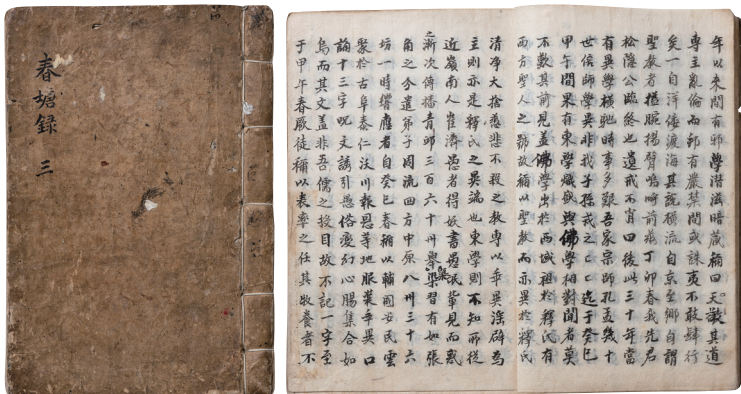 春塘錄 三
年以來間有邪學潛滋暗藏稱曰天敎其道
專主亂倫而郭有嚴禁間或誅夷不敢肆行
矣一自洋倭渡海其說橫流自京至鄕自謂
聖教者搤腕揚臂唱呼前丁卯春我先君
松隱公臨終也遺戒不肖曰後此三十年當
有異學橫馳時事多艱吾家宗師孔孟幾十
世侯師學異非我子孫戒之迄于癸巳
甲午間果有東學熾與佛學相對聞者莫
不歎其前見盖佛學出於西域祖於釋氏有
西方聖人之號故稱以聖教而亦異於釋氏
清净大捨慈悲不殺之教專以乖異淫辟爲
主則亦是釋氏之異端也東學則不知所從
近嶺南人崔濟愚者得妖書愚民輩見而惑
之漸次傳播青邱三百六十州擧染習有如張
角之分遣弟子周流四方中原八州三十六
坊一時響應者自癸巳春稱以輔國安民雲
聚於古阜泰仁沃川報恩等地服業乖異口
誦十三字呪文誘引愚俗變幻心腸集合如
烏而其文盖非吾儒之投目故不記一字至
于甲午春厥徒稱以表率之任其敎養者不